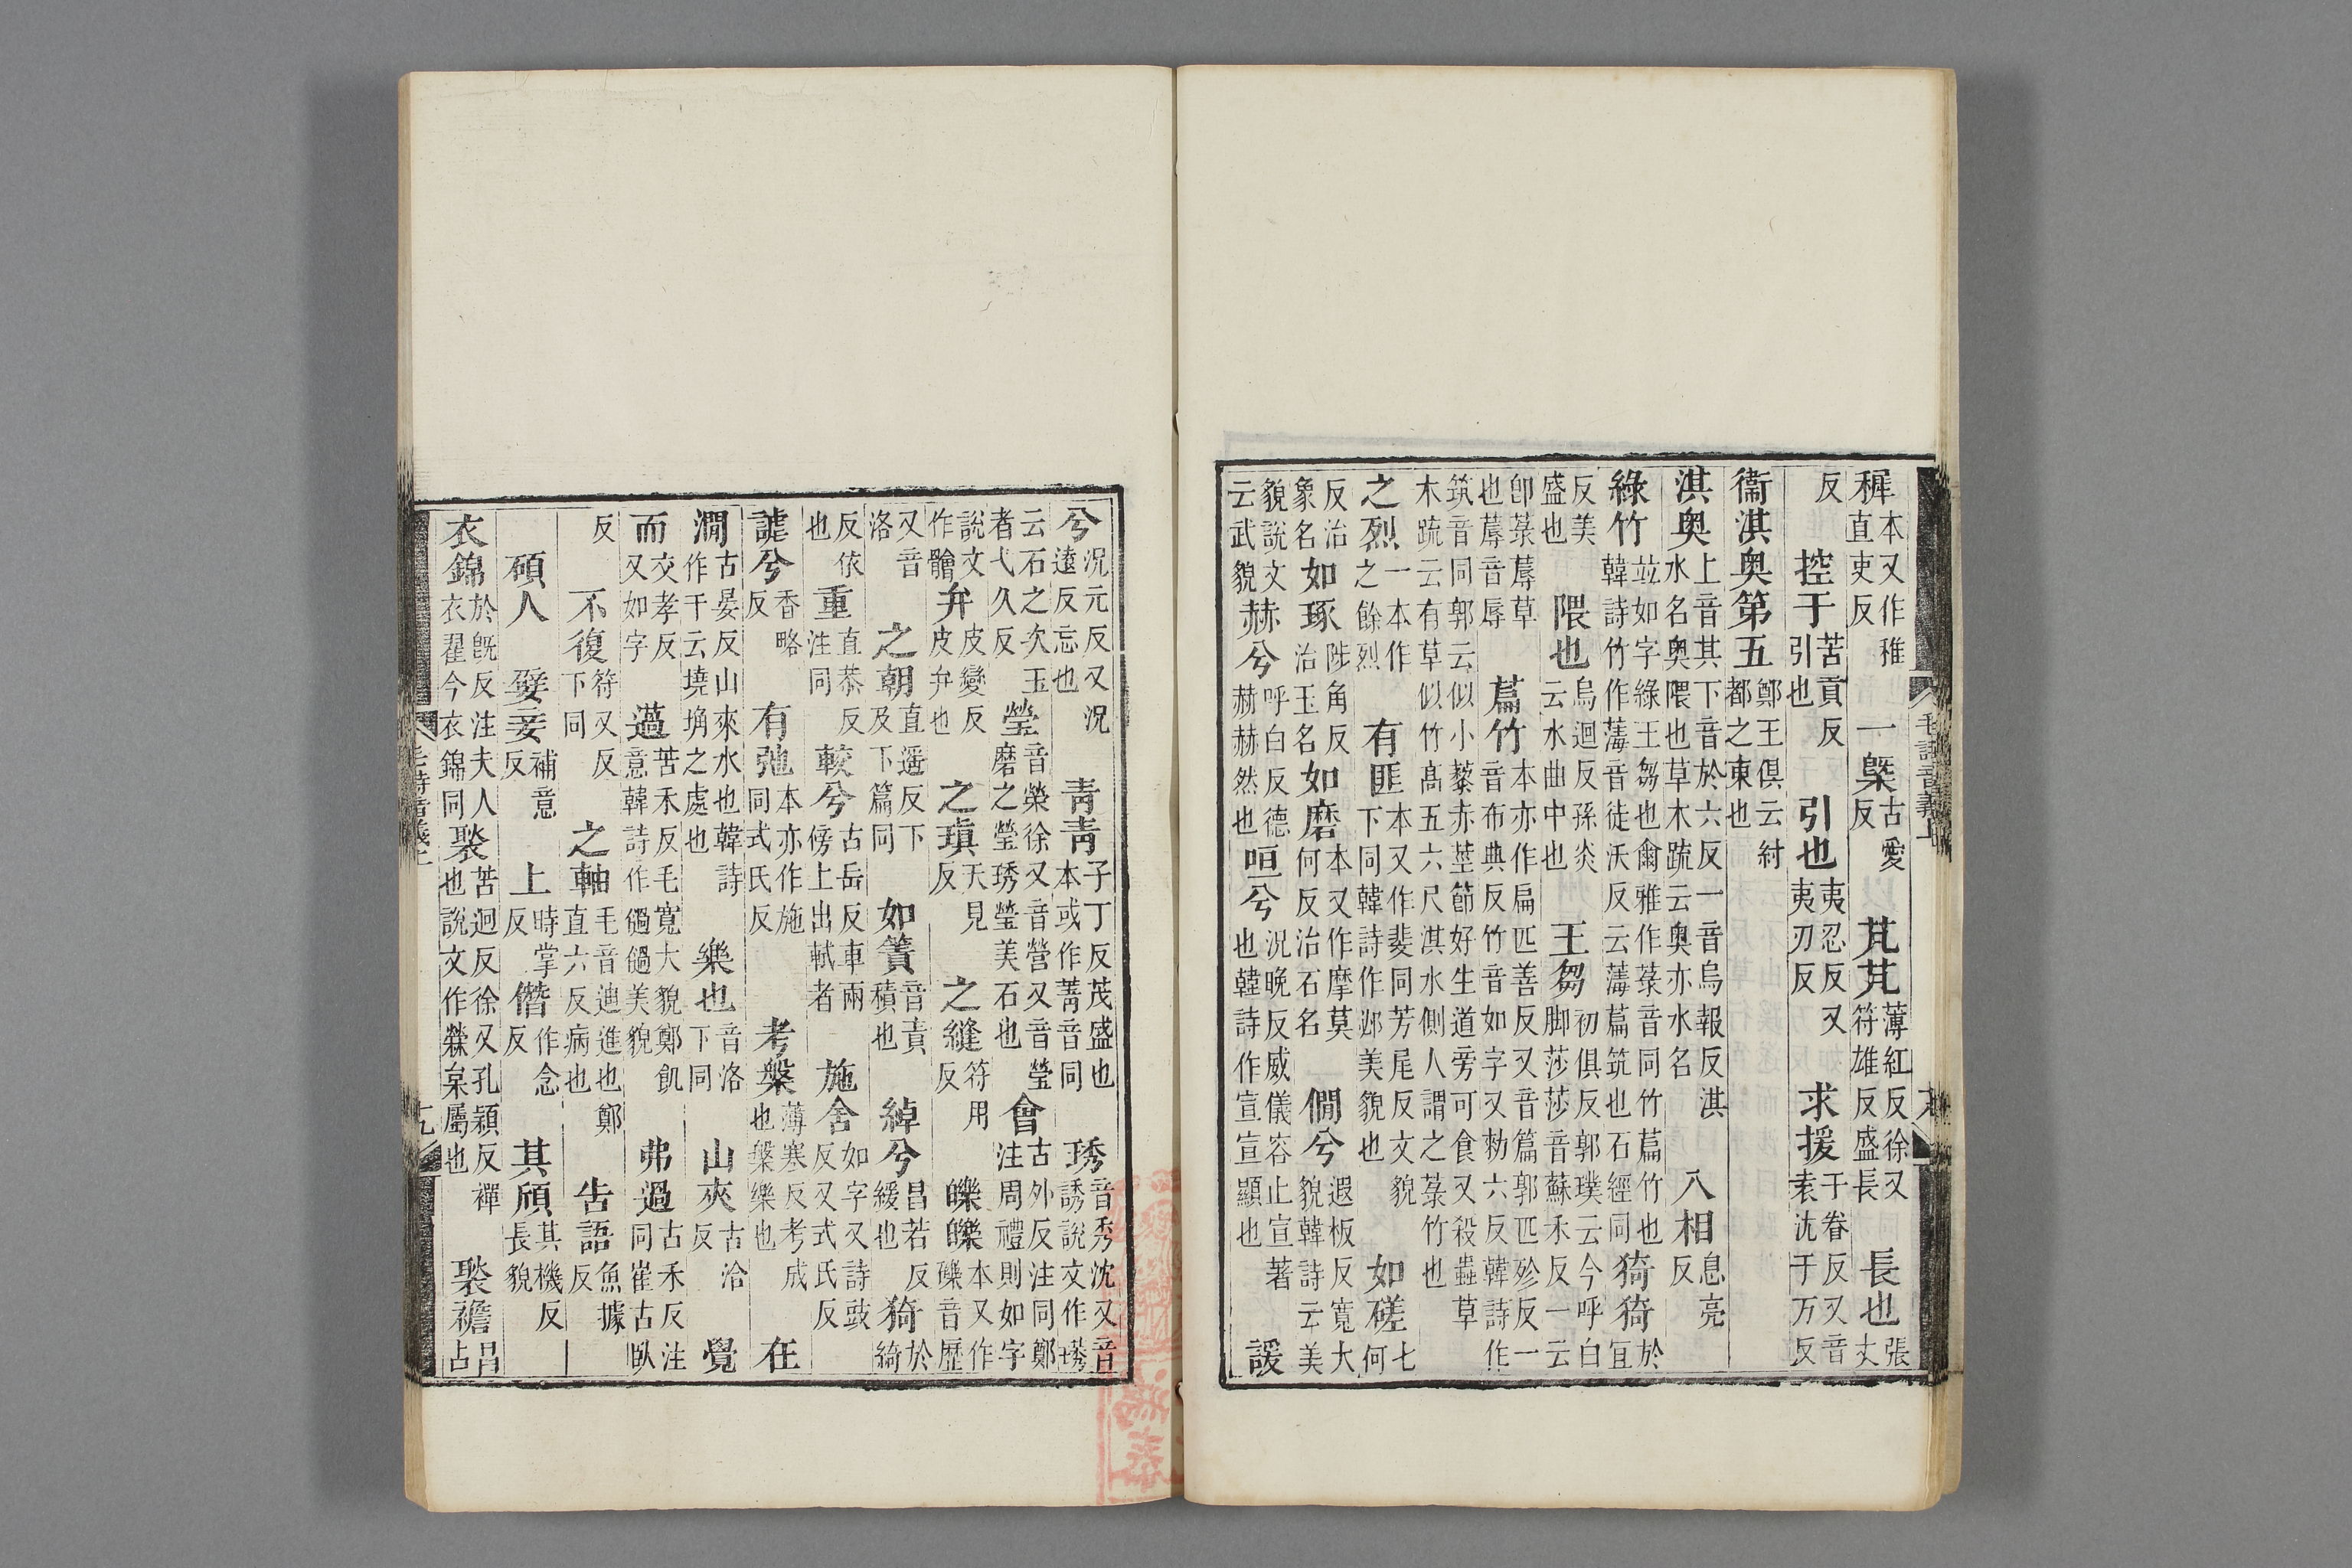 穉本又作稚直吏反一槩古愛反芃芃薄紅反徐又符雄反盛長長也張丈
反控于苦貢反引也引也夷忍反又夷刃反求援于眷反又音袁沈于万反
衞淇奥第五鄭王俱云紂都之東也
淇奥上音其下音於六反一音烏報反淇水名奥隈也草木疏云奥亦水名八相息亮反
綠竹竝如字綠王芻也爾雅作菉音同竹萹竹也韓詩竹作薄音徒沃反云薄萹筑也石經同猗猗於宜
反美盛也隈也烏迴反孫炎云水曲中也王芻初俱反郭璞云今呼白脚莎莎音蘇禾反一云
卽菉蓐草也蓐音辱萹竹本亦作扁匹善反又音篇郭匹殄反一音布典反竹音如字又勑六反韓詩作
筑音同郭云似小藜赤莖節好生道旁可食又殺蟲草木疏云有草似竹高五六尺淇水側人謂之菉竹也
之烈一本作之餘烈有匪本又作斐同芳尾反文貌下同韓詩作邲美貌也如磋七何
反治象名如琢陟角反治玉名如磨本又作摩莫何反治石名僩兮遐板反寬大貌韓詩云美
貌說文云武貌赫兮呼白反德赫赫然也咺兮況晚反威儀容止宣著也韓詩作宣宣顯也諼
兮況元反又況遠反忘也青青子丁反茂盛也本或作菁音同琇音秀沈又音誘說文作璓
云石之次玉者弋久反瑩音榮徐又音營又音瑩磨之瑩琇瑩美石也會古外反注同鄭注周禮則如字
說文作䯤弁皮變反皮弁也之瑱天見反之縫符用反皪皪本又作礫音歷
又音洛之朝直遥反下及下篇同如簀音責積也綽兮昌若反緩也猗於綺
反依也重直恭反注同較兮古岳反車兩傍上出軾者施舍如字又詩豉反又式氏反
謔兮香略反有弛本亦作施同式氏反考槃薄寒反考成也槃樂也在
澗古晏反山夾水也韓詩作干云墝埆之處也樂也音洛下同山夾古洽反覺
而交孝反又如字薖苦禾反毛寬大貌鄭飢意韓詩作㗻㗻美貌弗過古禾反注同崔古臥
反不復符又反下同之軸毛音迪進也鄭直六反病也告語魚據反
碩人嬖妾補意反上時掌反僭作念反其頎其機反長貌
衣錦於旣反注夫人衣翟今衣錦同褧苦迴反徐又孔穎反襌也說文作檾枲屬也褧襜昌占
毛詩音義上